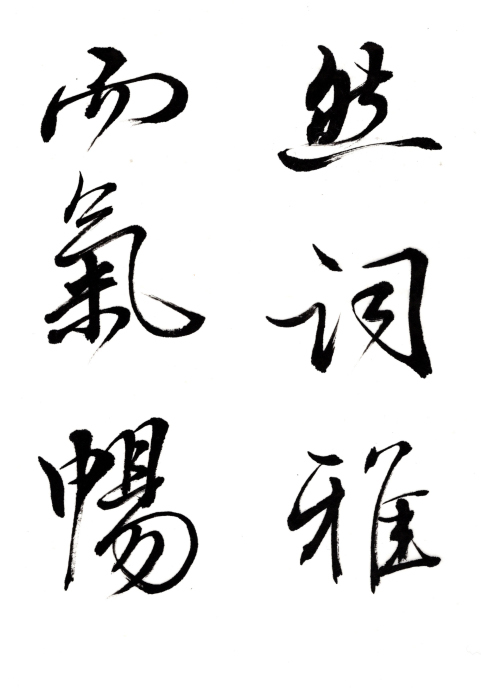 然詞雅
而氣暢